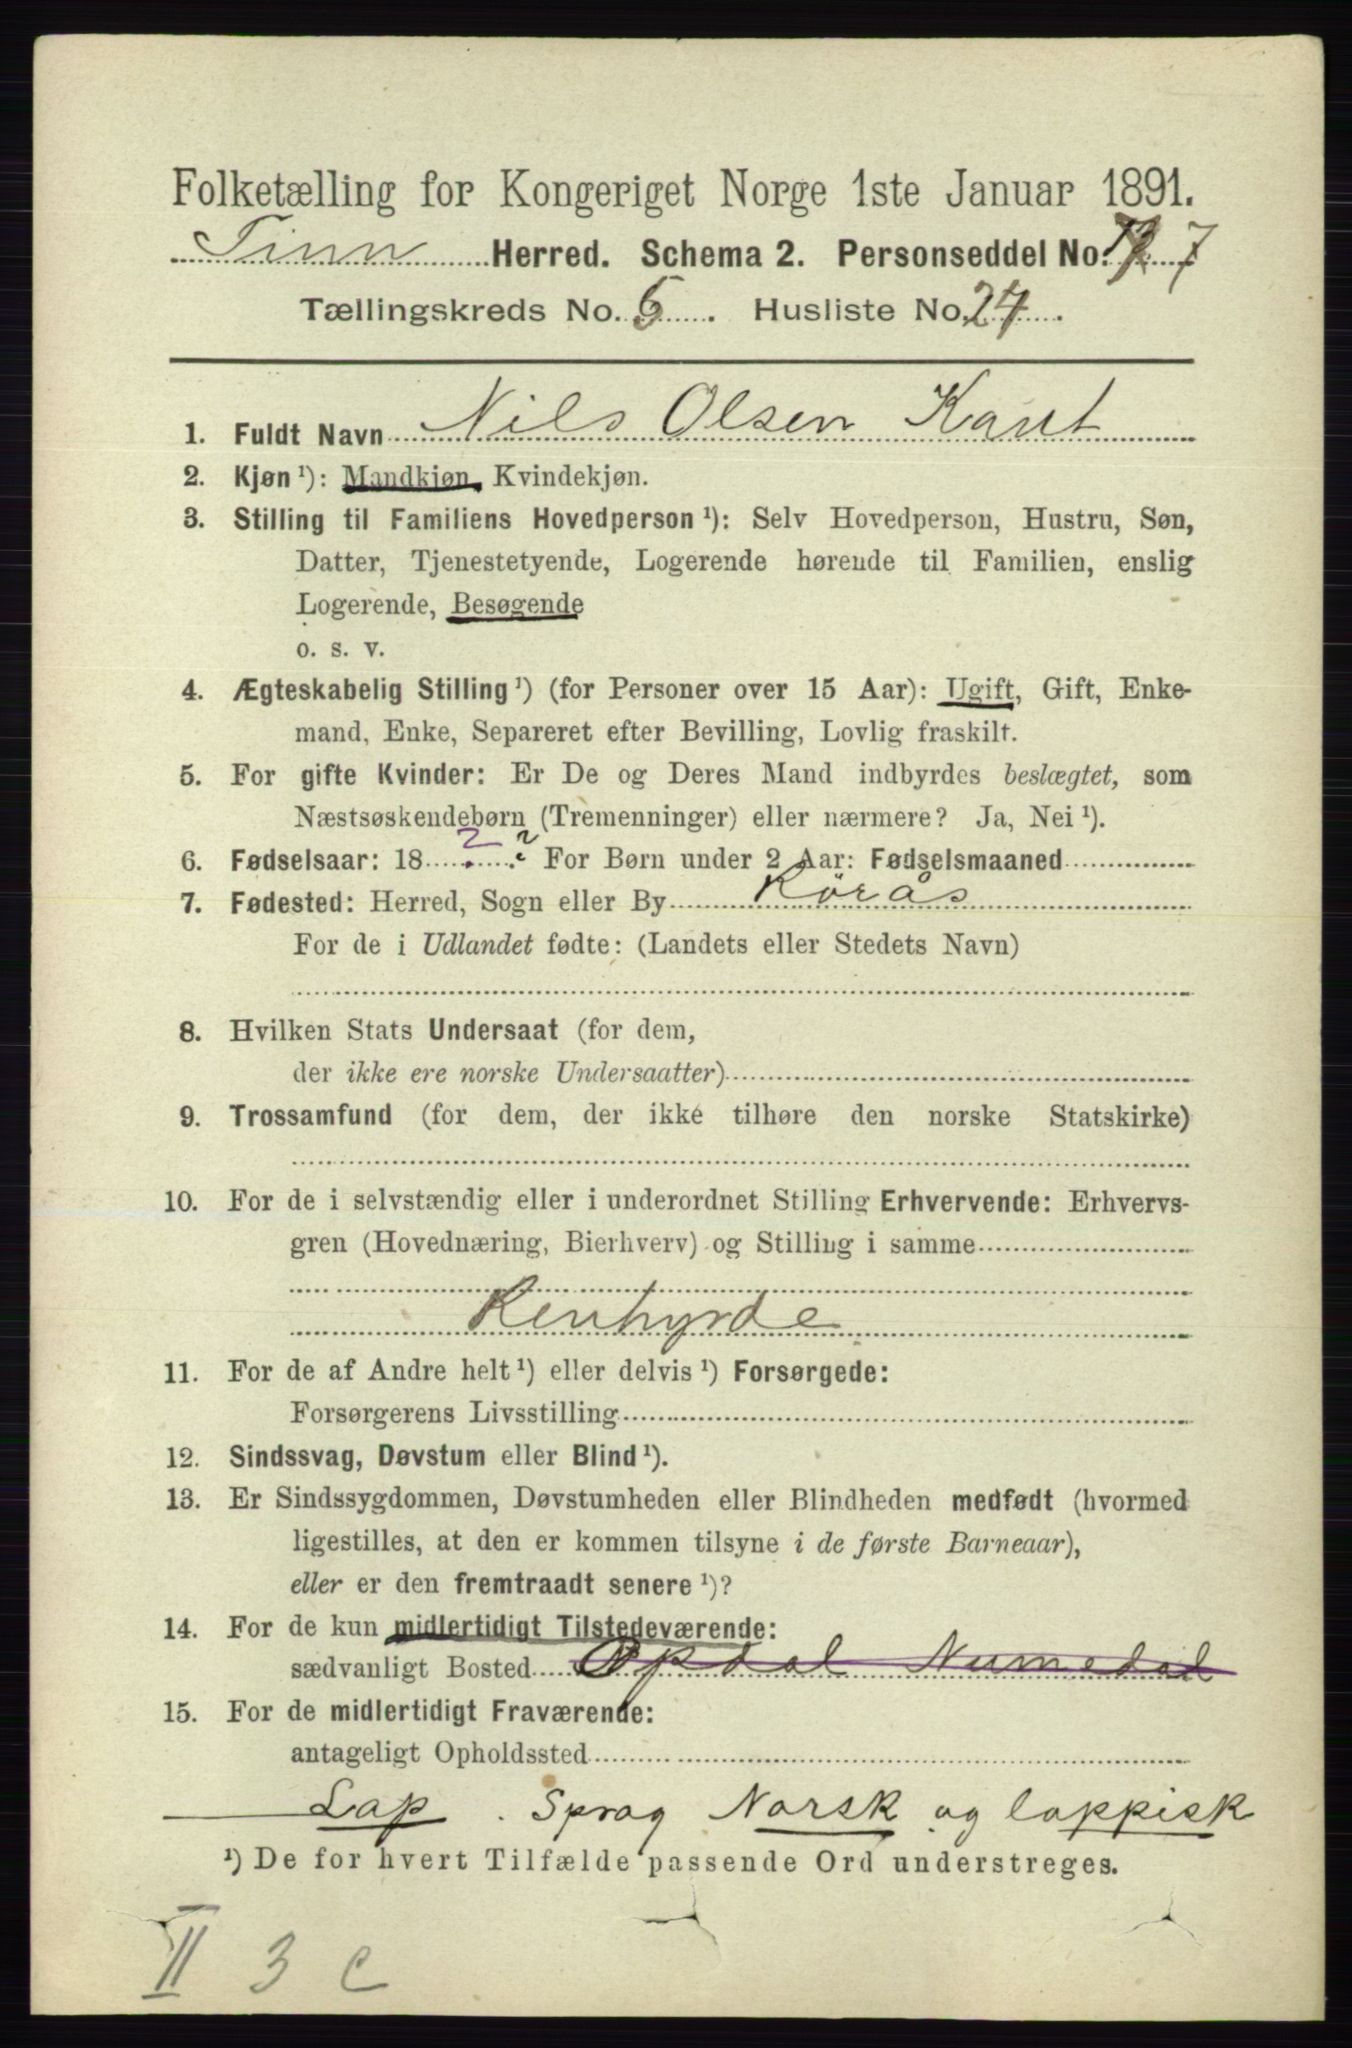 Folketælling for Kongeriget Norge 1ste Januar 1891.
Tinn Herred. Schema 2. Personseddel No. 7
Tællingskreds No. 6. Husliste No. 24.
1. Fuldt Navn Nils Olsen Kant
2. Kjøn¹): Mandkjøn, Kvindekjøn.
3. Stilling til Familiens Hovedperson¹): Selv Hovedperson, Hustru, Søn,
Datter, Tjenestetyende, Logerende hørende til Familien, enslig
Logerende, Besøgende
o. s. v.
4. Ægteskabelig Stilling¹) (for Personer over 15 Aar): Ugift, Gift, Enke-
mand, Enke, Separeret efter Bevilling, Lovlig fraskilt.
5. For gifte Kvinder: Er De og Deres Mand indbyrdes beslægtet, som
Næstsøskendebørn (Tremenninger) eller nærmere? Ja, Nei¹).
6. Fødselsaar: 18 ? ? For Børn under 2 Aar: Fødselsmaaned
7. Fødested: Herred, Sogn eller By Rörås
For de i Udlandet fødte: (Landets eller Stedets Navn)
8. Hvilken Stats Undersaat (for dem,
der ikke ere norske Undersaatter)
9. Trossamfund (for dem, der ikke tilhøre den norske Statskirke)
10. For de i selvstændig eller i underordnet Stilling Erhvervende: Erhvervs-
gren (Hovednæring, Bierhverv) og Stilling i samme
Renhyrde
11. For de af Andre helt¹) eller delvis¹) Forsørgede:
Forsørgerens Livsstilling
12. Sindssvag, Døvstum eller Blind¹).
13. Er Sindssygdommen, Døvstumheden eller Blindheden medfødt (hvormed
ligestilles, at den er kommen tilsyne i de første Barneaar),
eller er den fremtraadt senere¹)?
14. For de kun midlertidigt Tilstedeværende:
sædvanligt Bosted Opdal Numedal
15. For de midlertidigt Fraværende:
antageligt Opholdssted
Lap. Sprog Norsk og lappisk
¹) De for hvert Tilfælde passende Ord understreges.
II 3 c